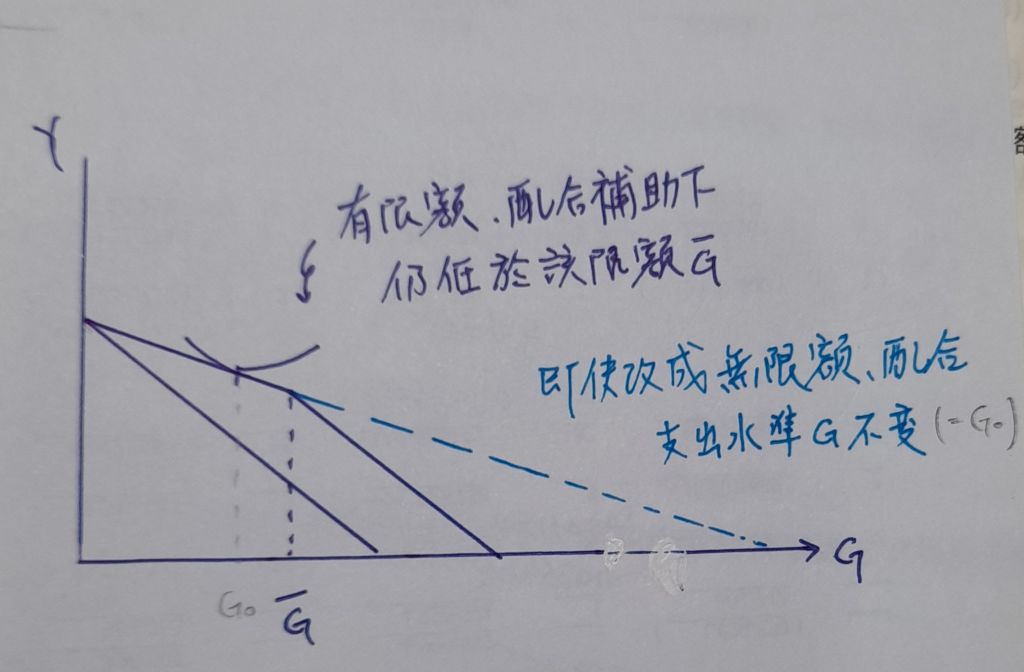 Y
有限額、配合補助下
仍低於該限額 G̅
即使改成無限額、配合
支出水準 G 不變 (=G₀)
G
G₀ G̅